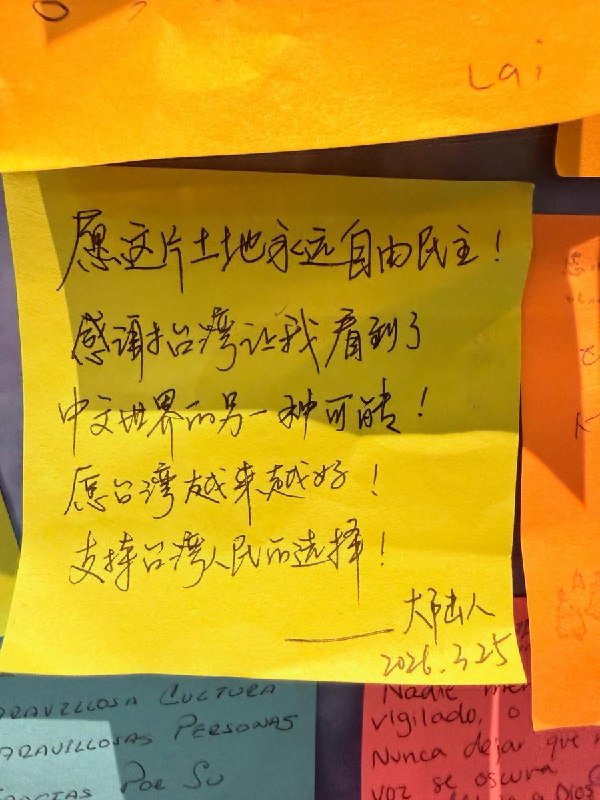 Lai
愿这片土地永远自由民主！
感谢台湾让我看到了
中文世界的另一种可能！
愿台湾越来越好！
支持台湾人民的选择！
——大陆人
2026.3.25
ARAVILLOSA CULTURA
ARAVILLOSAS PERSONAS
POR SU
Nadie
vigilado, o
Nunca dejar que
voz se oscura